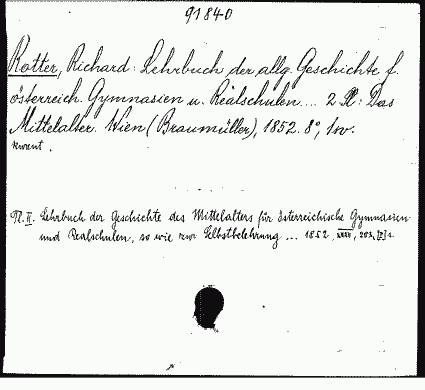 91840
Rotter, Richard: Lehrbuch der allg. Geschichte f.
österreich. Gymnasien u. Realschulen... 2 Tl: Das
Mittelalter. Wien (Braumüller), 1852. 8°, 1w.
Tl. II. Lehrbuch der Geschichte des Mittelalters für österreichische Gymnasien
und Realschulen, so wie zur Selbstbelehrung ... 1852